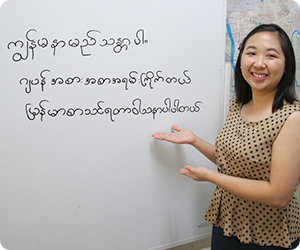 ကျွန်မနာမည်သန္တာပါ။
ဂျပန်အစားအစာအရမ်းကြိုက်တယ်
မြန်မာစာသင်ရတာဝါသနာပါပါတယ်